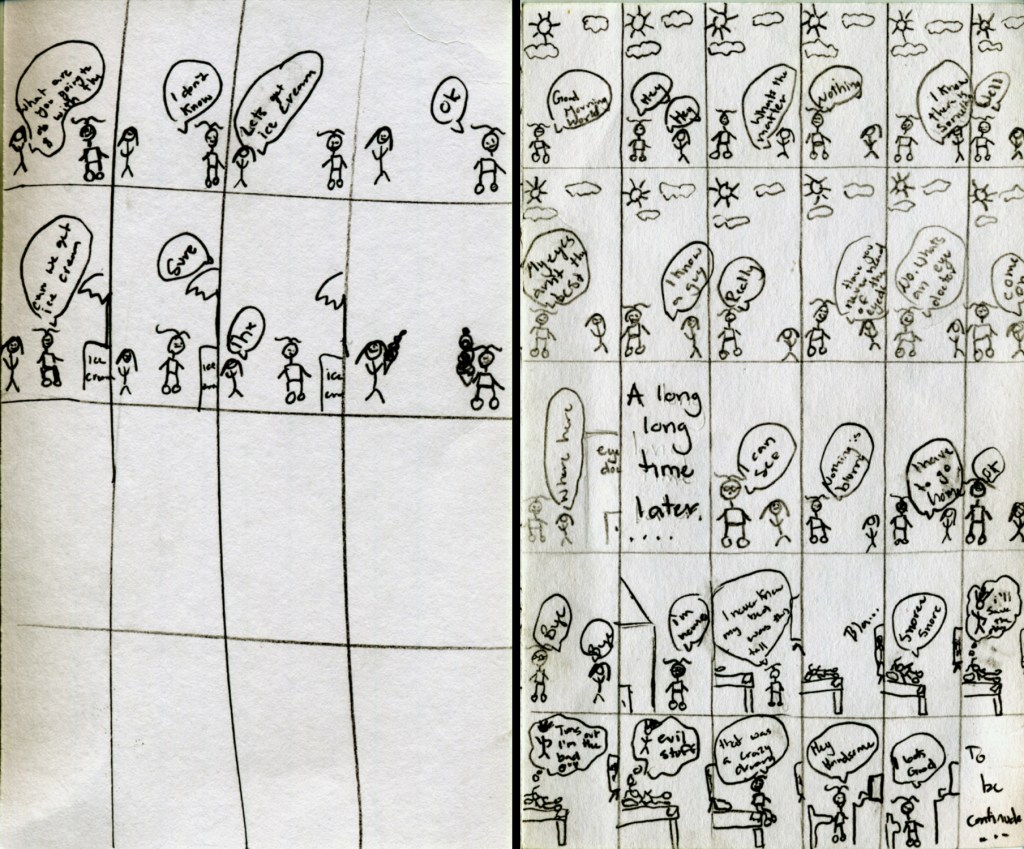 What are
you going to
do with the
I don't
Know
Lets get
ice cream
OK
can we get
ice cream
ice
cream
Sure
ice
Thx
ice
Good
Morning
World
Hey
Hey
Whats the
matter
Nothing
I Know
there
Well
My eyes
arnt the
best
I know
a guy
Really
have you
ever heard
of
the
eye
No. Whats
an eye
doctor
come
on
Where here
eye
doc
A long
long
time
later.
....
I can
see
Nothing is
blurry
I have
to go
home
OK
Bye
Bye
im
home
I never knew
my bed
was this
tall
Bla...
Snore
Snore
i'll
save
Turns out
I'm the
bad
guy
evil
stuff
that was
a crazy
dream
Hey
Handsome
I look
Good
To
be
continude
...